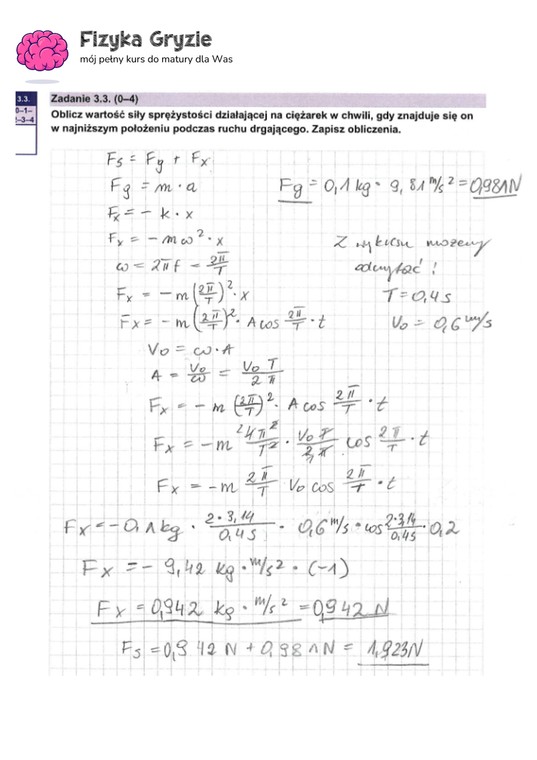 Fizyka Gryzie
mój pełny kurs do matury dla Was
3.3.
0–1–
–3–4
Zadanie 3.3. (0–4)
Oblicz wartość siły sprężystości działającej na ciężarek w chwili, gdy znajduje się on
w najniższym położeniu podczas ruchu drgającego. Zapisz obliczenia.
Fs = Fg + Fx
Fg = m · a
Fg = 0,1 kg · 9,81 m/s² = 0,981N
Fx = – k · x
Fx = – mω² · x
Z wykresu możemy
ω = 2πf = 2π/T
odczytać!
Fx = – m (2π/T)² · x
T = 0,4s
Fx = – m (2π/T)² · A cos 2π/T · t
Vo = 0,6 m/s
Vo = ω · A
A = Vo/ω = Vo T/2π
Fx = – m (2π/T)² · A cos 2π/T · t
Fx = – m 4π²/T² · Vo T/2π cos 2π/T · t
Fx = – m 2π/T Vo cos 2π/T · t
Fx = – 0,1kg · 2·3,14/0,4s · 0,6 m/s · cos 2·3,14/0,4s · 0,2
Fx = – 9,42 kg · m/s² · (–1)
Fx = 0,942 kg · m/s² = 0,942 N
Fs = 0,942 N + 0,981N = 1,923N